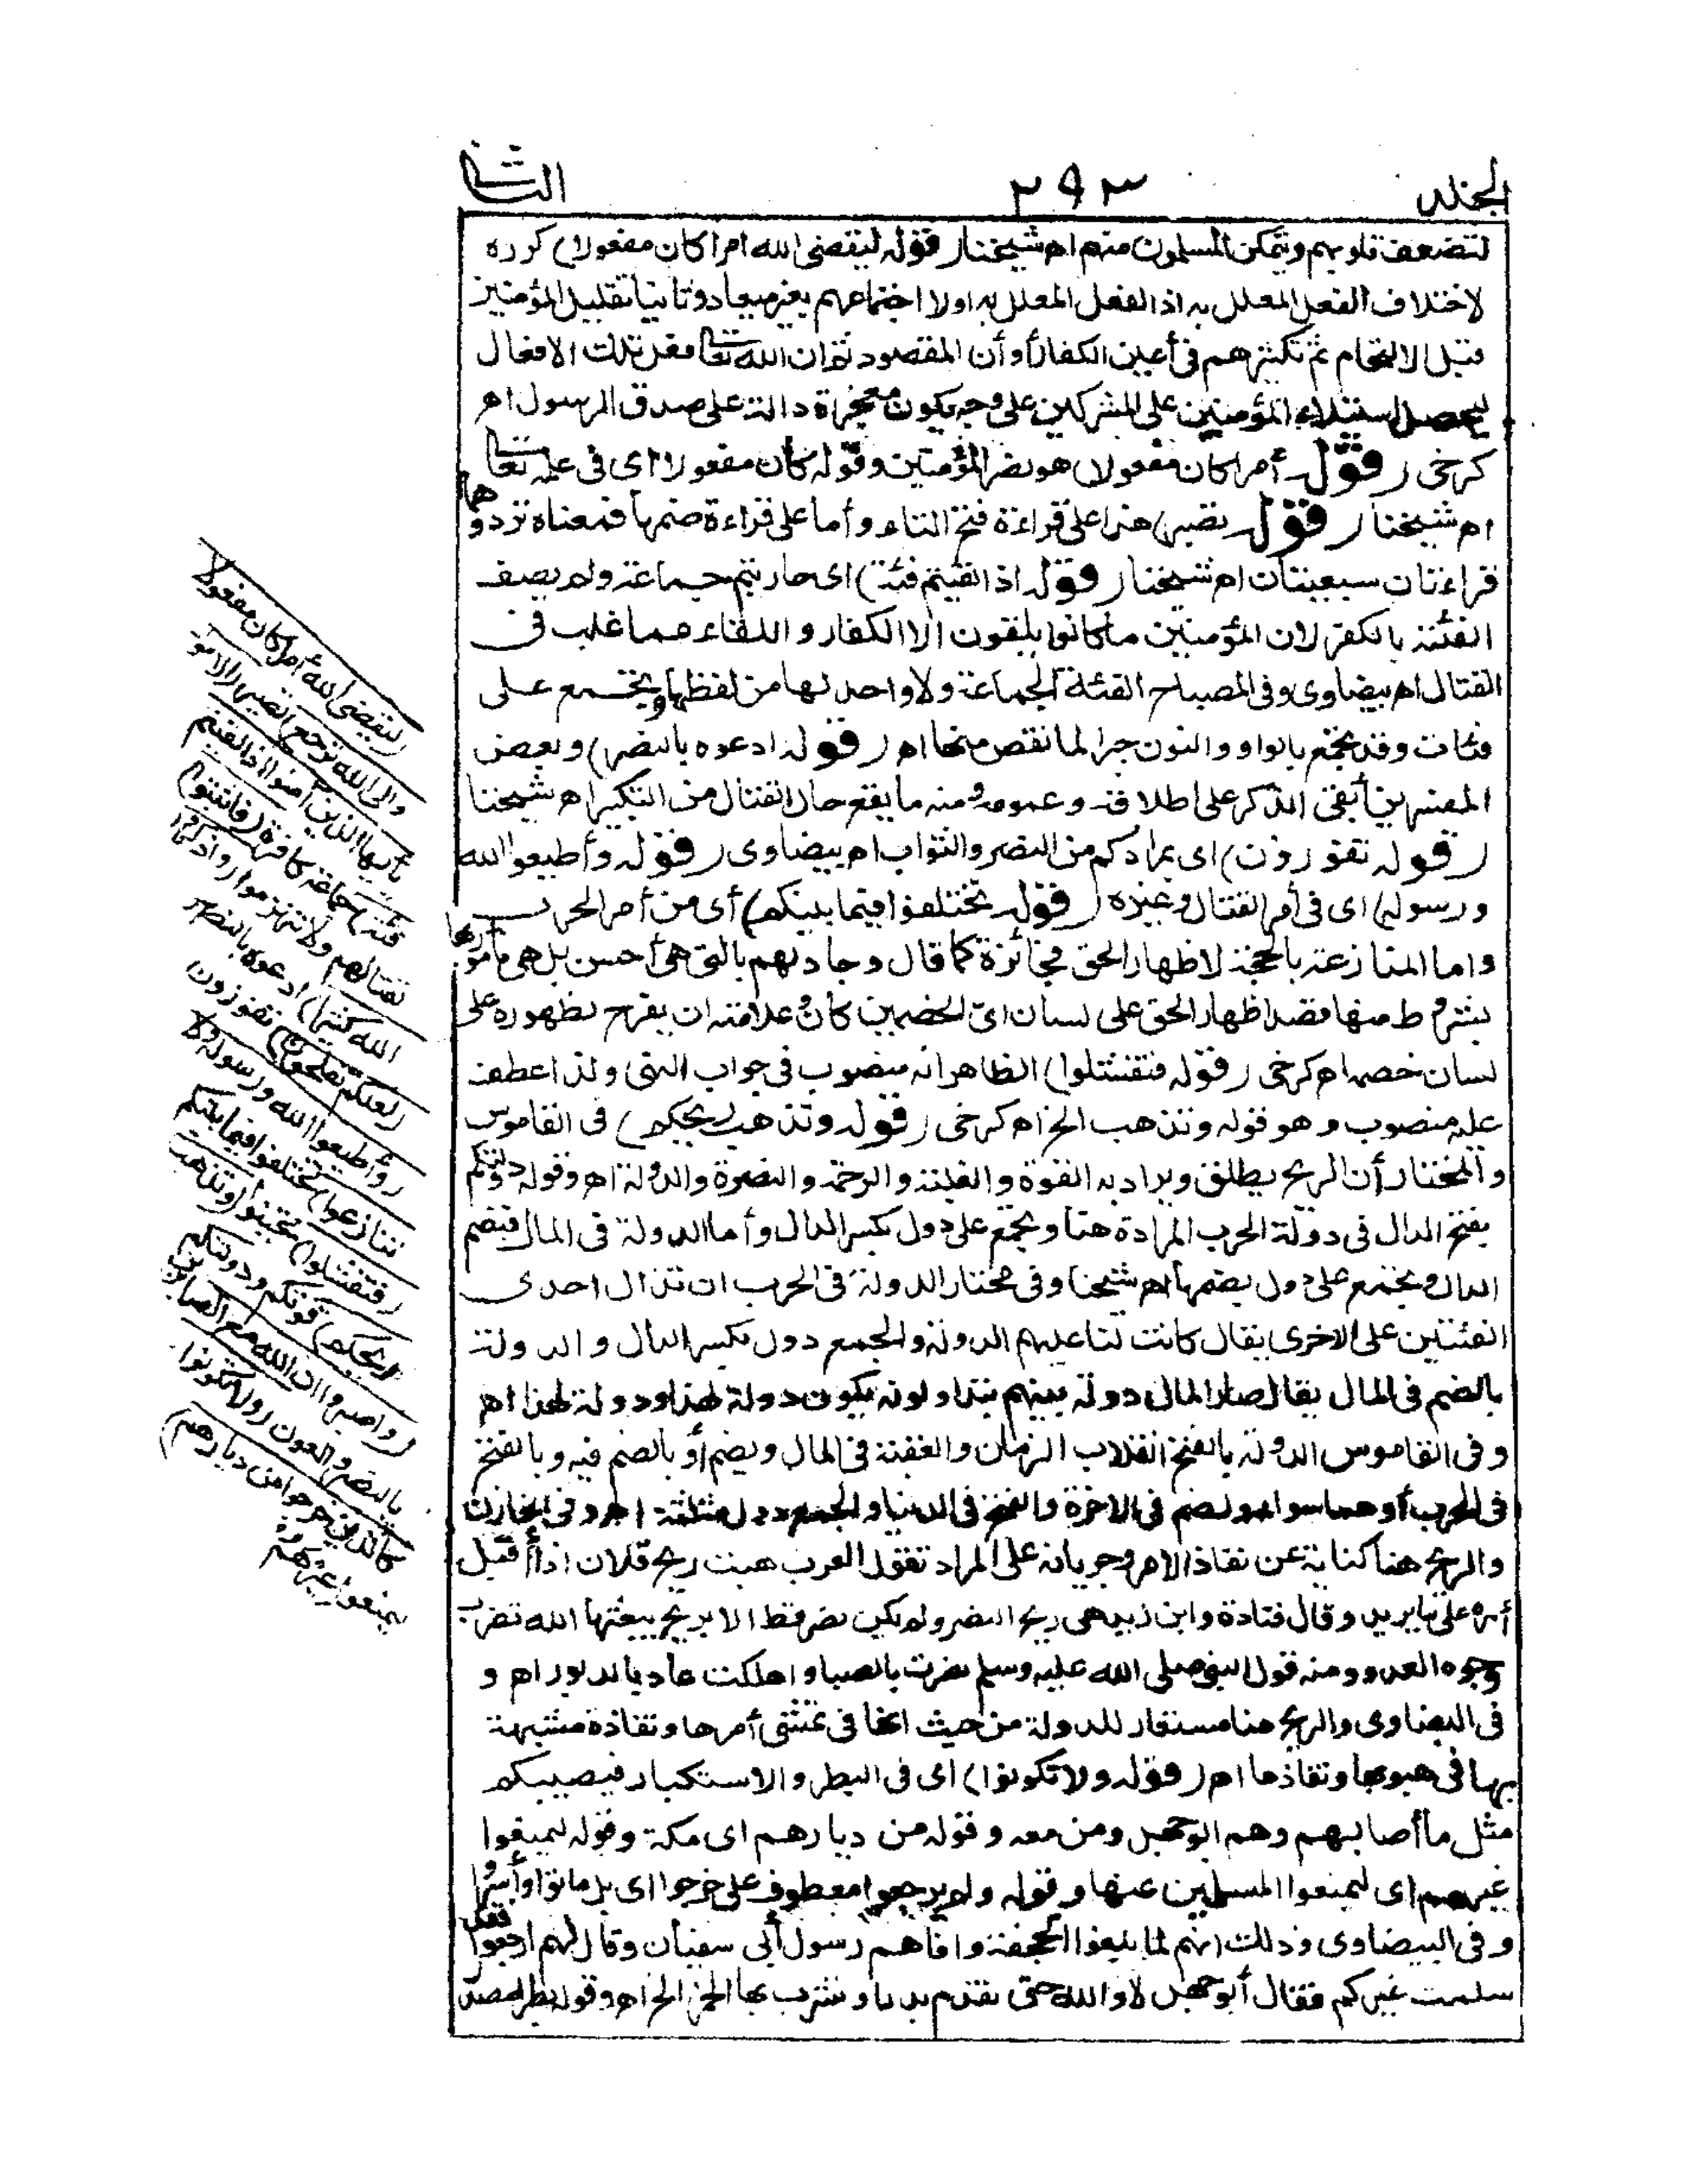 المجلد ٢٩٣ الثانى
لتضعف قلوبهم وتتمكن المسلمون منهم اه شيخنا (قوله ليقضى الله امرا كان مفعولا) كرره
لاختلاف الفعل المعلل به اذ الفعل المعلل به اولا اجتماعهم بغير ميعاد وثانيا تقليل المؤمنين
قبل الالتحام ثم تكثيرهم فى أعين الكفار أو أن المقصود ان الله تعالى فعل تلك الافعال
ليحصل استيلاء المؤمنين على المشركين على وجه يكون معجزة دالة على صدق الرسول اه
كرخى (قوله أمرا كان مفعولا) هو نصر المؤمنين وقوله كان مفعولا اى فى علمه تعالى
اه شيخنا (قوله تصير) هذا على قراءة فتح التاء وأما على قراءة ضمها فمعناه ترد وهما
قراءتان سبعيتان اه شيخنا (قوله اذا لقيتم فئة) اى حاربتم جماعة ولم يصف
الفئة بالكفر لان المؤمنين ما كانوا يلقون الا الكفار و اللقاء مما غلب فى
القتال اه بيضاوى وفى المصباح الفئة الجماعة ولا واحد لها من لفظها ويجمع على
فئات وقد يجمع بالواو والنون جبرا لما نقص منها اه (قوله ادعوه بالنصر) وبعض
المفسرين أبقى الذكر على اطلاقه وعمومه ومنه ما يقع حال القتال من التكبير اه شيخنا
(قوله تفوزون) اى بمرادكم من النصر والثواب اه بيضاوى (قوله وأطيعوا الله
ورسوله) اى فى أمر القتال وغيره (قوله تختلفوا فيما بينكم) أى من أمر الحرب
واما المنازعة بالحجة لاظهار الحق فجائزة كما قال وجادلهم بالتى هى أحسن بل هى مأمور بها
بشروط منها قصد اظهار الحق على لسان اىّ الخصمين كان وعلامته ان يفرح بظهوره على
لسان خصمه اه كرخى (قوله فتفشلوا) الظاهر انه منصوب فى جواب النهى ولذا عطف
عليه منصوب وهو قوله وتذهب الخ اه كرخى (قوله وتذهب ريحكم) فى القاموس
والمختار أن الريح يطلق ويراد به القوة والغلبة والرحمة والنصرة والدولة اه وقوله دولتكم
بفتح الدال فى دولة الحرب المرادة هنا ويجمع على دول بكسر الدال وأما الدولة فى المال فبضم
الدال ويجمع على دول بضمها اه شيخنا وفى مختار الدولة فى الحرب ان تدال احدى
الفئتين على الاخرى يقال كانت لنا عليهم الدولة والجمع دول بكسر الدال و الدولة
بالضم فى المال يقال صار المال دولة بينهم يتداولونه يكون دولة لهذا ودولة لهذا اه
وفى القاموس الدولة بالفتح انقلاب الزمان والعقبة فى المال ويضم أو بالضم فيه وبالفتح
فى الحرب أو هما سواء او بضم فى الاخرة والفتح فى الدنيا والجمع دول مثلثة اه وفى الخازن
والريح هنا كناية عن نفاذ الامر وجريانه على المراد تقول العرب هبت ريح فلان اذا أقبل
أمره على ما يريد وقال قتادة وابن زيد هى ريح النصر ولم يكن نصر قط الا بريح يبعثها الله تضرب
وجوه العدو ومنه قول النبى صلى الله عليه وسلم نصرت بالصبا و اهلكت عاد بالدبور اه و
فى البيضاوى والريح هنا مستعار للدولة من حيث انها فى تمشى أمرها ونفاذه مشبهة
بها فى هبوبها ونفاذها اه (قوله ولا تكونوا) اى فى البطر والاستكبار فيصيبكم
مثل ما أصابهم وهم ابو جهل ومن معه وقوله من ديارهم اى مكة وقوله ليمنعوا
غيرهم اى ليمنعوا المسلمين عنها وقوله ولم يرجعوا معطوف على خرجوا اى بل ماتوا وأسروا
وفى البيضاوى وذلك انهم لما بلغوا الجحفة وافاهم رسول أبى سفيان وقال لهم ارجعوا فقد
سلمت عيركم فقال أبو جهل لا والله حتى نقدم بدرا ونشرب بها الخمر الخ اه وقوله بطرا مصدر
(ليقضى الله أمرا كان مفعولا
والى الله ترجع) تصير (الامور
يأيها الذين آمنوا اذا لقيتم
فئة) جماعة كافرة (فاثبتوا)
لقتالهم ولا تنهزموا (واذكروا
الله كثيرا) ادعوه بالنصر
(لعلكم تفلحون) تفوزون
(وأطيعوا الله ورسوله ولا
تنازعوا) تختلفوا فيما بينكم
(فتفشلوا) تجبنوا (وتذهب
ريحكم) قوتكم ودولتكم
(واصبروا ان الله مع الصابرين)
بالنصر والعون (ولا تكونوا
كالذين خرجوا من ديارهم)
ليمنعوا غيرهم